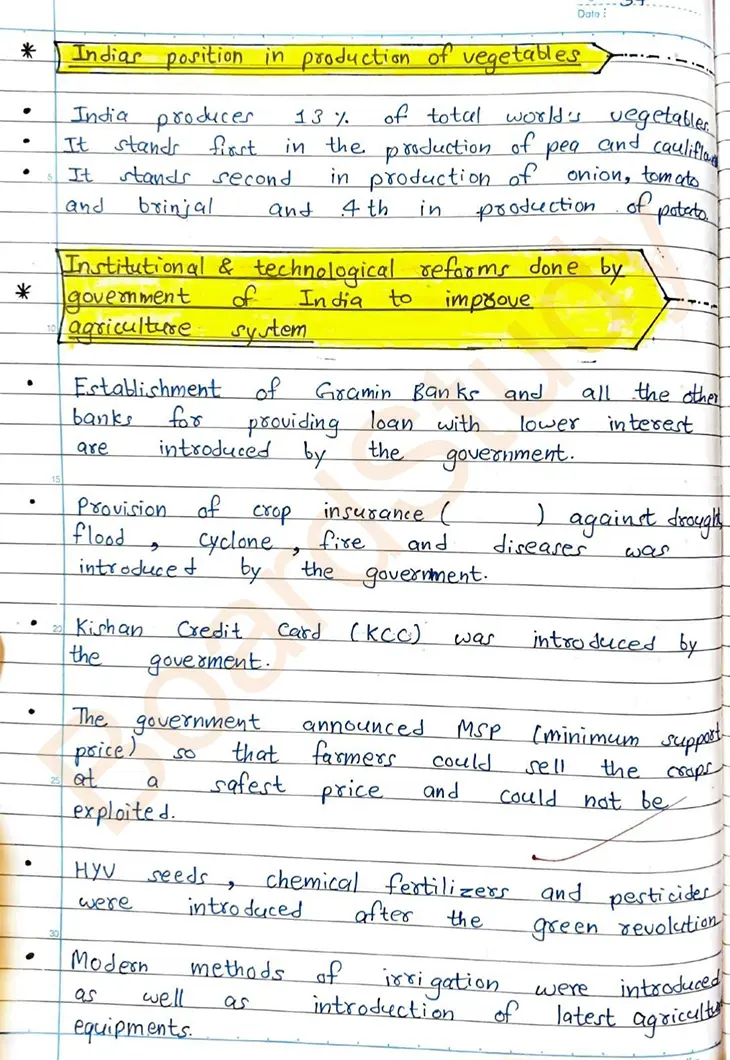 Date :
* Indias position in production of vegetables
• India produces 13% of total world's vegetables.
• It stands first in the production of pea and cauliflow
• It stands second in production of onion, tomato
and brinjal and 4th in production of potato.
* Institutional & technological reforms done by
government of India to improve
agriculture system
• Establishment of Gramin Banks and all the other
banks for providing loan with lower interest
are introduced by the government.
• Provision of crop insurance ( ) against drought,
flood, cyclone, fire and diseases was
introduced by the government.
• Kishan Credit Card (KCC) was introduced by
the goverment.
• The government announced MSP (minimum support
price) so that farmers could sell the crops
at a safest price and could not be
exploited.
• HYV seeds, chemical fertilizers and pesticides
were introduced after the green revolution
• Modern methods of irrigation were introduced
as well as introduction of latest agricultur
equipments.
BoardStudy